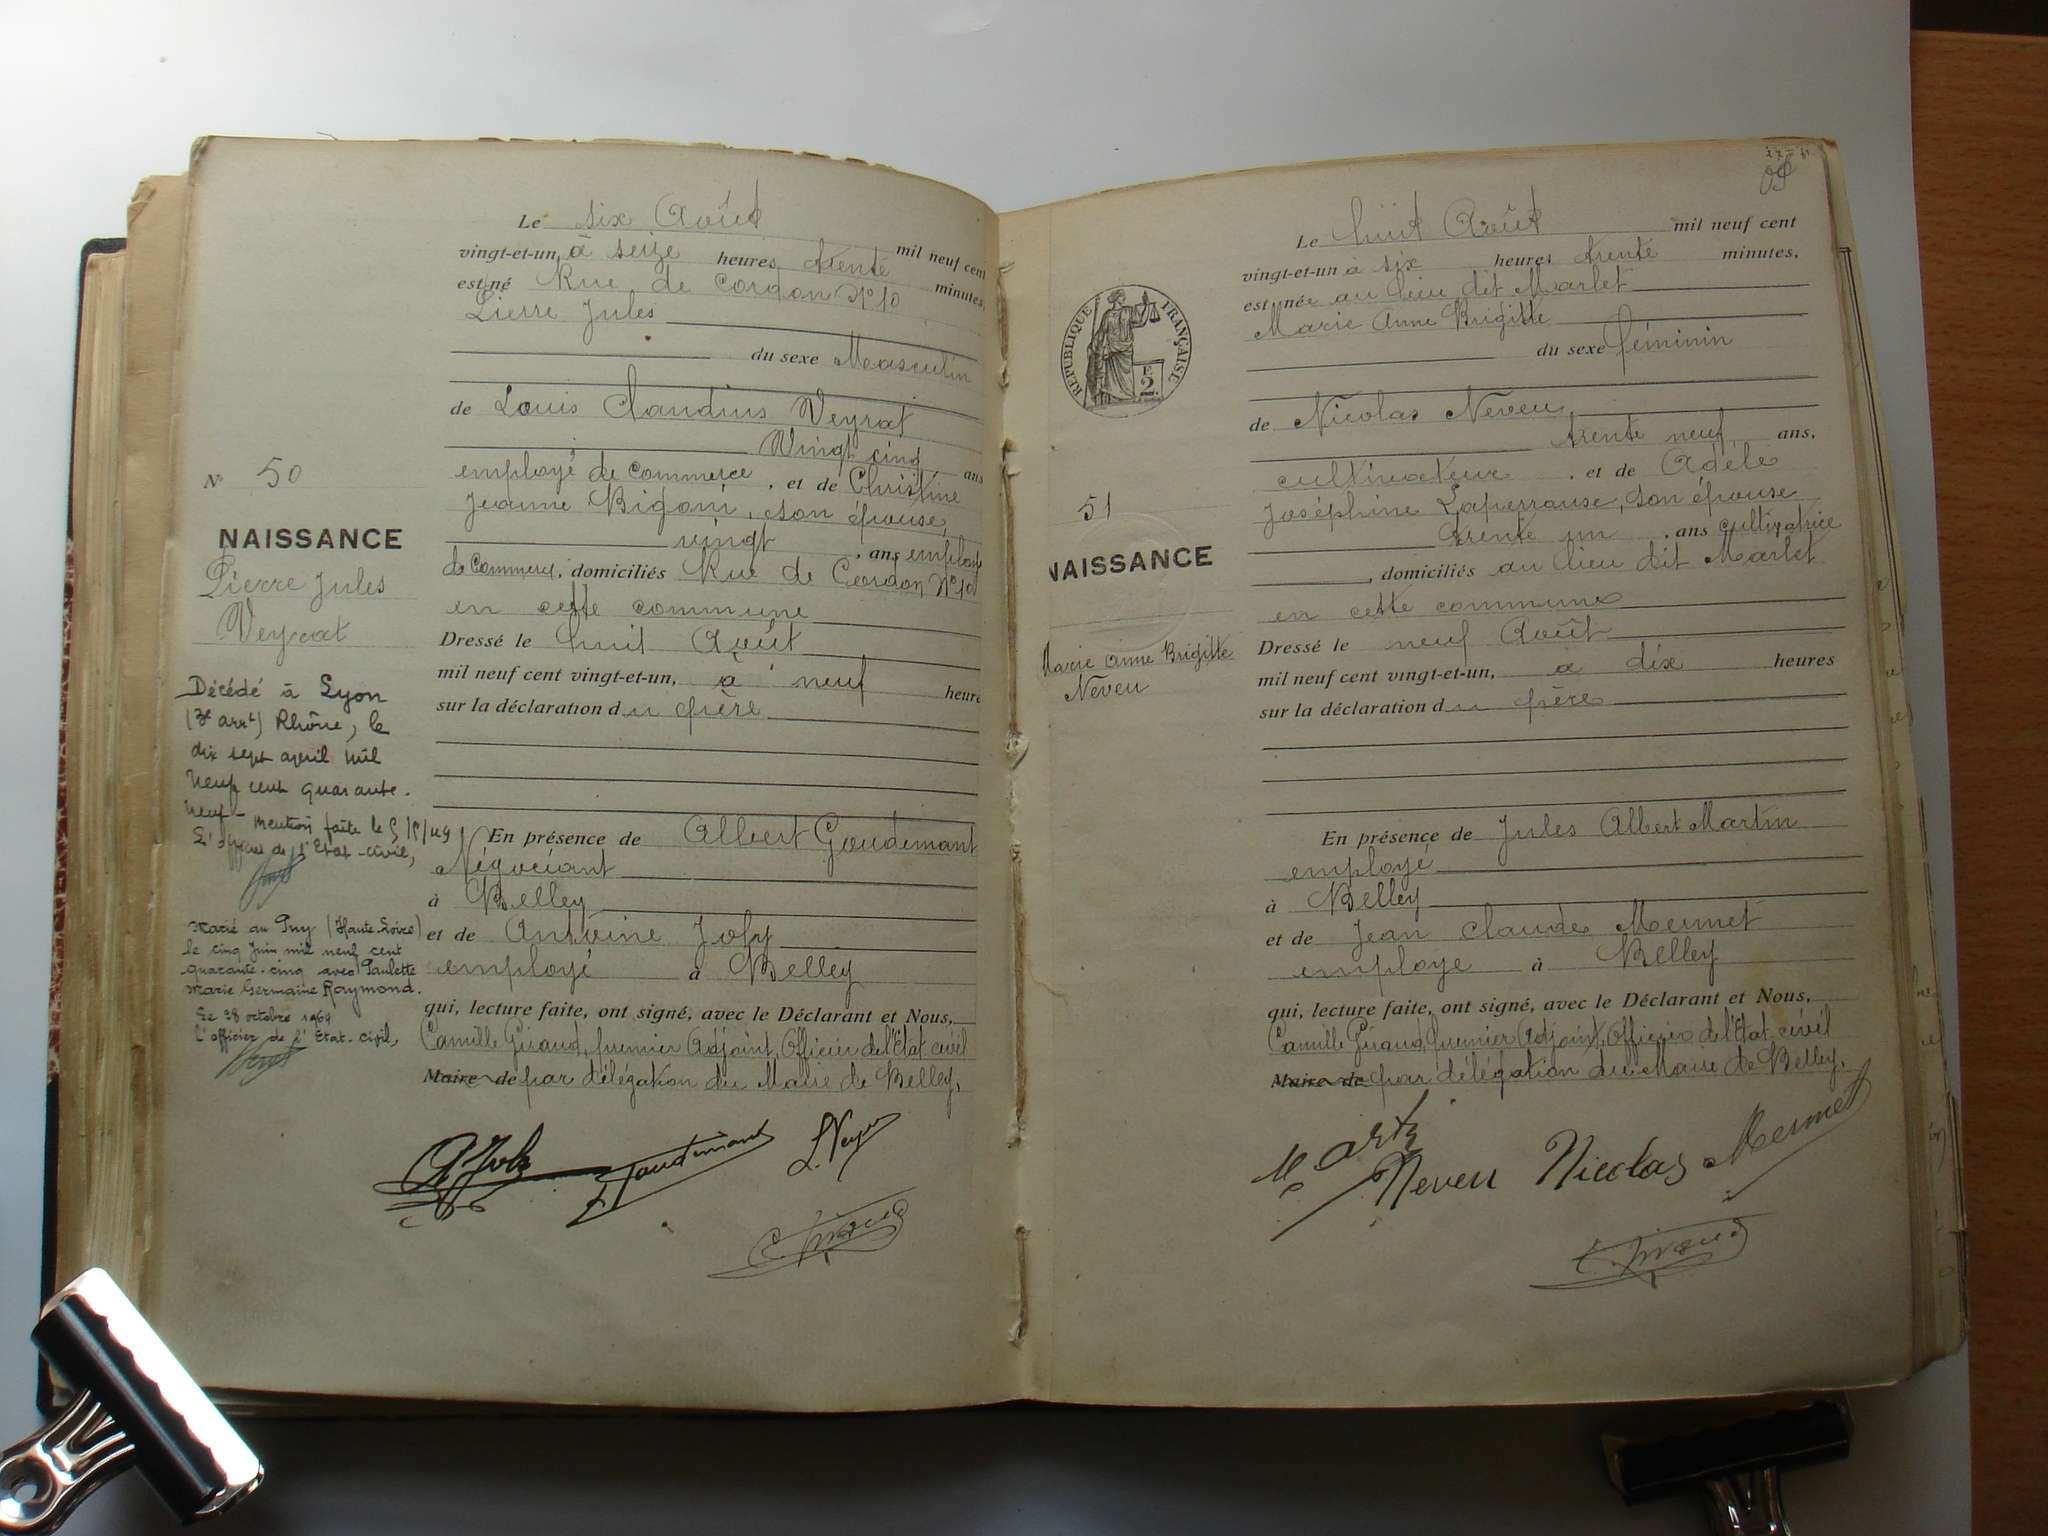 Le six Août mil neuf cent
vingt-et-un, à seize heures trente minutes,
est né Rue de Cordon N° 10
Pierre Jules
du sexe Masculin
de Louis Claudius Veyrat
Vingt cinq ans
employé de Commerce, et de Christine
Jeanne Bigoni, son épouse,
vingt, ans employ
de Commerce, domiciliés Rue de Cordon N° 10
en cette commune
Dressé le huit Août
mil neuf cent vingt-et-un, à neuf heure
sur la déclaration du père
En présence de Albert Goudimant
Négociant
à Belley
et de Antoine Joly
employé à Belley
qui, lecture faite, ont signé, avec le Déclarant et Nous,
Camille Giraud, premier Adjoint, Officier de l'Etat civil
Maire de par délégation du Maire de Belley,
A. Joly Goudimant L. Veyrat
C. Giraud
N° 50
NAISSANCE
Pierre Jules
Veyrat
Décédé à Lyon
(3e arrt) Rhône, le
dix sept avril mil
neuf cent quarante-
neuf - mention faite le
L'officier de l'Etat-civil,
Marié au Puy (Haute-Loire)
le cinq Juin mil neuf cent
quarante-cinq avec Paulette
Marie Germaine Raymond.
Le 28 octobre 1969
L'officier de l'Etat-civil,
Le huit Août mil neuf cent
vingt-et-un à six heures trente minutes,
est née au lieu dit Marlet
Marie Anne Brigitte
du sexe féminin
de Nicolas Neveu
trente neuf, ans,
cultivateur, et de Adèle
Joséphine Laperrouse, son épouse
trente un, ans cultivatrice
, domiciliés au lieu dit Marlet
en cette commune
Dressé le neuf Août
mil neuf cent vingt-et-un, à dix heures
sur la déclaration du père
En présence de Jules Albert Martin
employé
à Belley
et de Jean Claude Mermet
employe à Belley
qui, lecture faite, ont signé, avec le Déclarant et Nous,
Camille Giraud, premier Adjoint, Officier de l'Etat civil
Maire de par délégation du Maire de Belley,
Neveu Nicolas Mermet
C. Giraud
RÉPUBLIQUE FRANÇAISE
2
51
NAISSANCE
Marie Anne Brigitte
Neveu